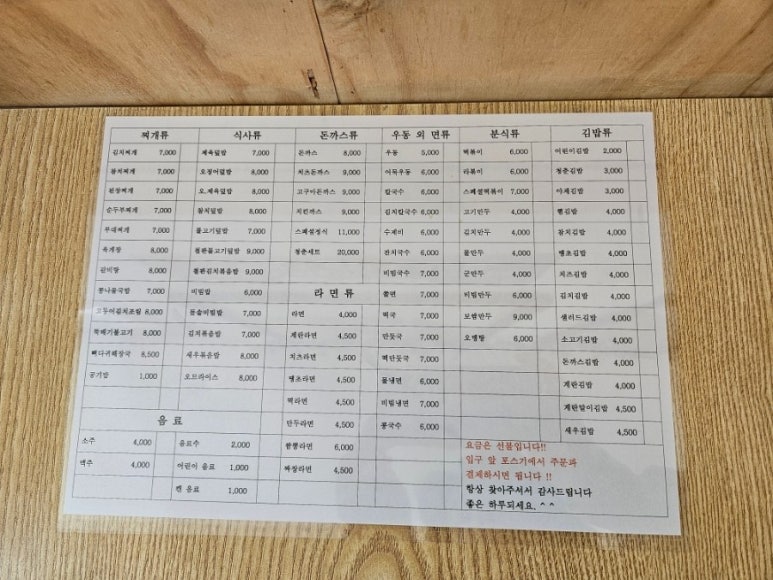 찌개류 식사류 돈까스류 우동 외 면류 분식류 김밥류
김치찌개 7,000 제육덮밥 7,000 돈까스 8,000 우동 5,000 떡볶이 6,000 어린이김밥 2,000
참치찌개 7,000 오징어덮밥 8,000 치즈돈까스 9,000 어묵우동 6,000 라볶이 6,000 청춘김밥 3,000
된장찌개 7,000 오.제육덮밥 8,000 고구마돈까스 9,000 칼국수 6,000 스페셜떡볶이 7,000 야채김밥 3,000
순두부찌개 7,000 참치덮밥 8,000 치킨까스 9,000 김치칼국수 6,000 고기만두 4,000 햄김밥 4,000
부대찌개 7,000 불고기덮밥 8,000 스페셜정식 11,000 수제비 6,000 김치만두 4,000 참치김밥 4,000
육개장 8,000 철판불고기덮밥 9,000 청춘세트 20,000 잔치국수 6,000 물만두 4,000 땡초김밥 4,000
갈비탕 8,000 철판김치볶음밥 9,000 비빔국수 7,000 군만두 4,000 치즈김밥 4,000
콩나물국밥 7,000 비빔밥 6,000 라면류 쫄면 7,000 비빔만두 6,000 김치김밥 4,000
고등어김치조림 8,000 돌솥비빔밥 7,000 라면 4,000 떡국 7,000 모람만두 9,000 샐러드김밥 4,000
뚝배기불고기 8,000 김치볶음밥 7,000 계란라면 4,500 만둣국 7,000 오뎅탕 6,000 소고기김밥 4,000
뼈다귀해장국 8,500 새우볶음밥 8,000 치즈라면 4,500 떡만둣국 7,000 돈까스김밥 4,000
공기밥 1,000 오므라이스 8,000 땡초라면 4,500 물냉면 6,000 계란김밥 4,000
떡라면 4,500 비빔냉면 7,000 계란말이김밥 4,500
음료 만두라면 4,500 콩국수 6,000 새우김밥 4,500
소주 4,000 음료수 2,000 짬뽕라면 6,000
맥주 4,000 어린이 음료 1,000 짜장라면 4,500
캔 음료 1,000
요금은 선불입니다!!
입구 앞 포스기에서 주문과
결제하시면 됩니다 !!
항상 찾아주셔서 감사드립니다
좋은 하루되세요. ^ ^